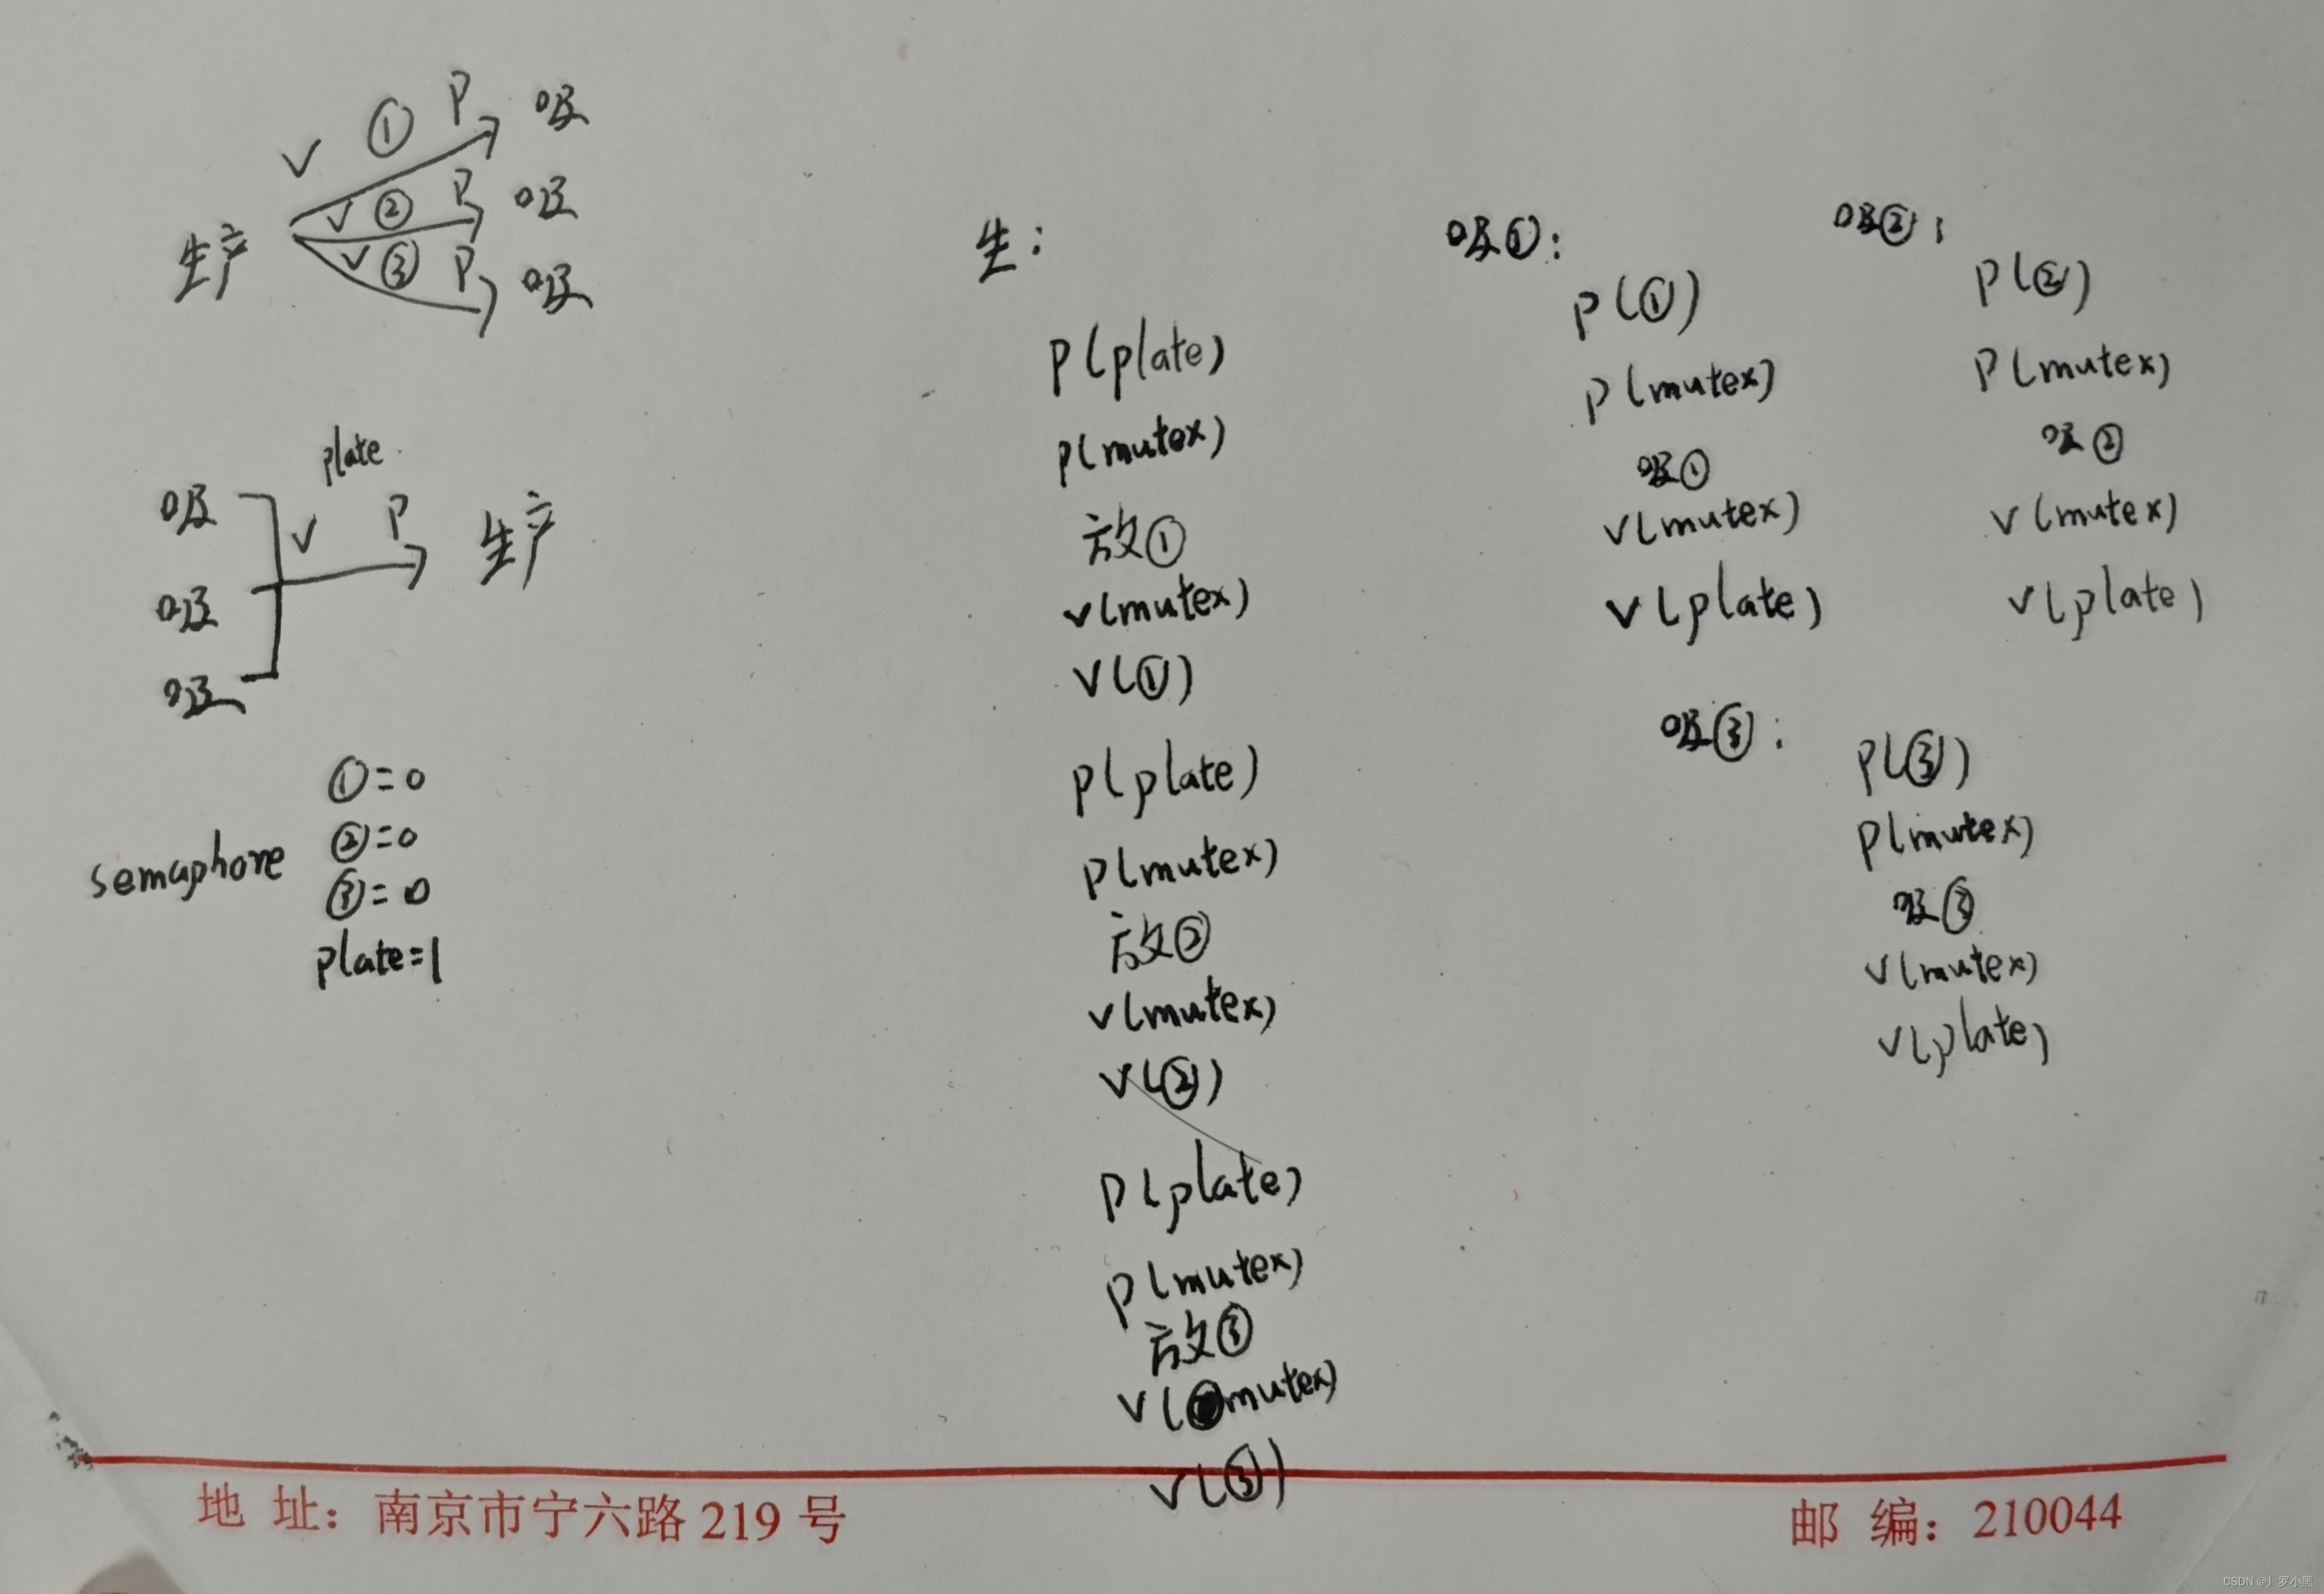 V ① P 吸
V ② P 吸
生产 V ③ P 吸
plate
吸
V P 生产
吸
吸
semaphore
①=0
②=0
③=0
plate=1
生:
P(plate)
P(mutex)
放①
V(mutex)
V(①)
P(plate)
P(mutex)
放②
V(mutex)
V(②)
P(plate)
P(mutex)
放③
V(mutex)
V(③)
吸①:
P(①)
P(mutex)
吸①
V(mutex)
V(plate)
吸②:
P(②)
P(mutex)
吸②
V(mutex)
V(plate)
吸③:
P(③)
P(mutex)
吸③
V(mutex)
V(plate)
地 址: 南京市宁六路 219 号
邮 编: 210044
CSDN @丿罗小黑